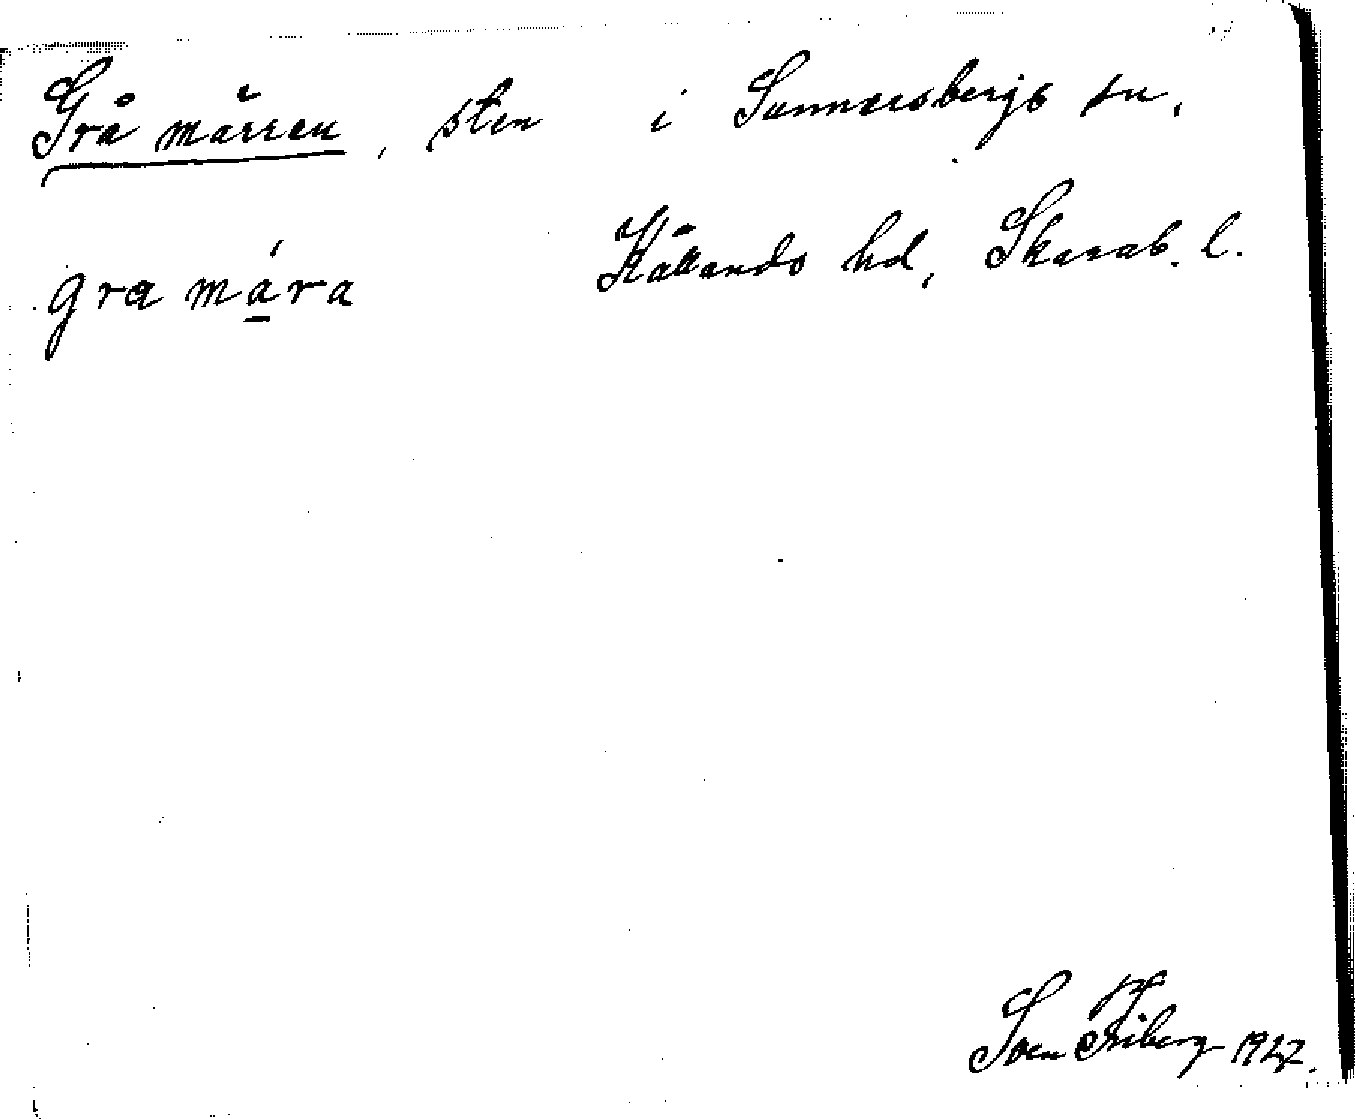 Grå märren, sten i Sunnersbergs sn,
Kållands hd, Skarab. l.
gra mára
Sven Friberg 1927.